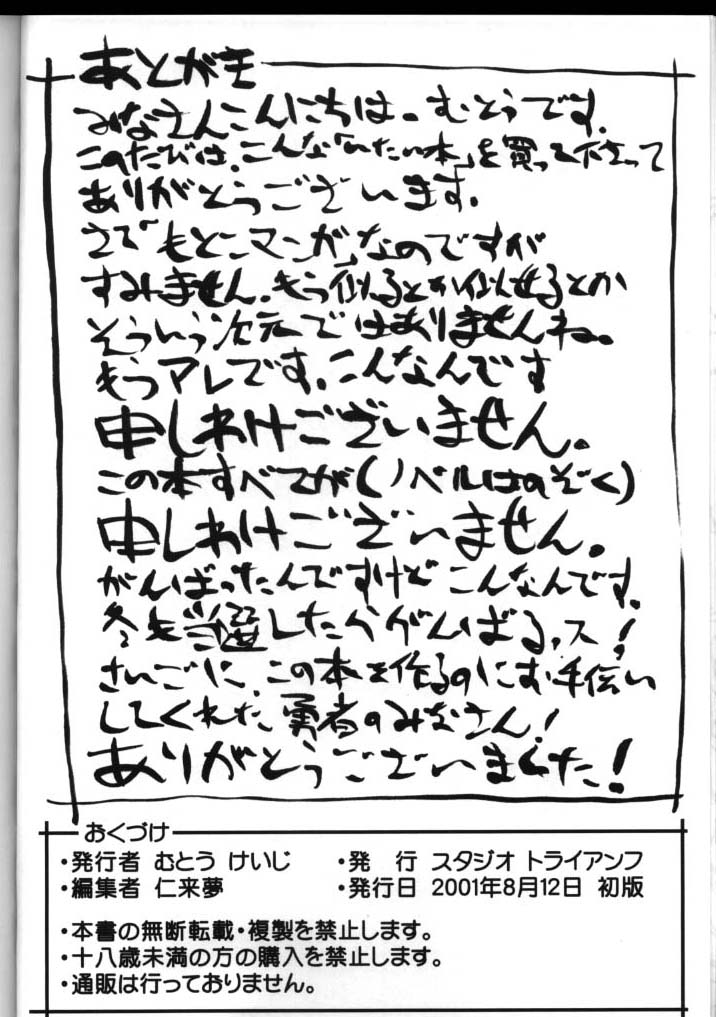 あとがき
みなさんこんにちは。むとうです。
このたびは、こんな「いたい本」を買って下さって
ありがとうございます。
さて「もとこマンガ」なのですが
すみません。もう似るとか似せるとか
そういう次元ではありませんね。
もうアレです。こんなんです
申しわけございません。
この本すべてが(ノベルはのぞく)
申しわけございません。
がんばったんですけど こんなんです。
冬も当選したらがんばるッス!
さいごに、この本を作るのにお手伝い
してくれた、勇者のみなさん!
ありがとうございました!
おくづけ
・発行者 むとう けいじ ・発 行 スタジオ トライアンフ
・編集者 仁来夢 ・発行日 2001年8月12日 初版
・本書の無断転載・複製を禁止します。
・十八歳未満の方の購入を禁止します。
・通販は行っておりません。